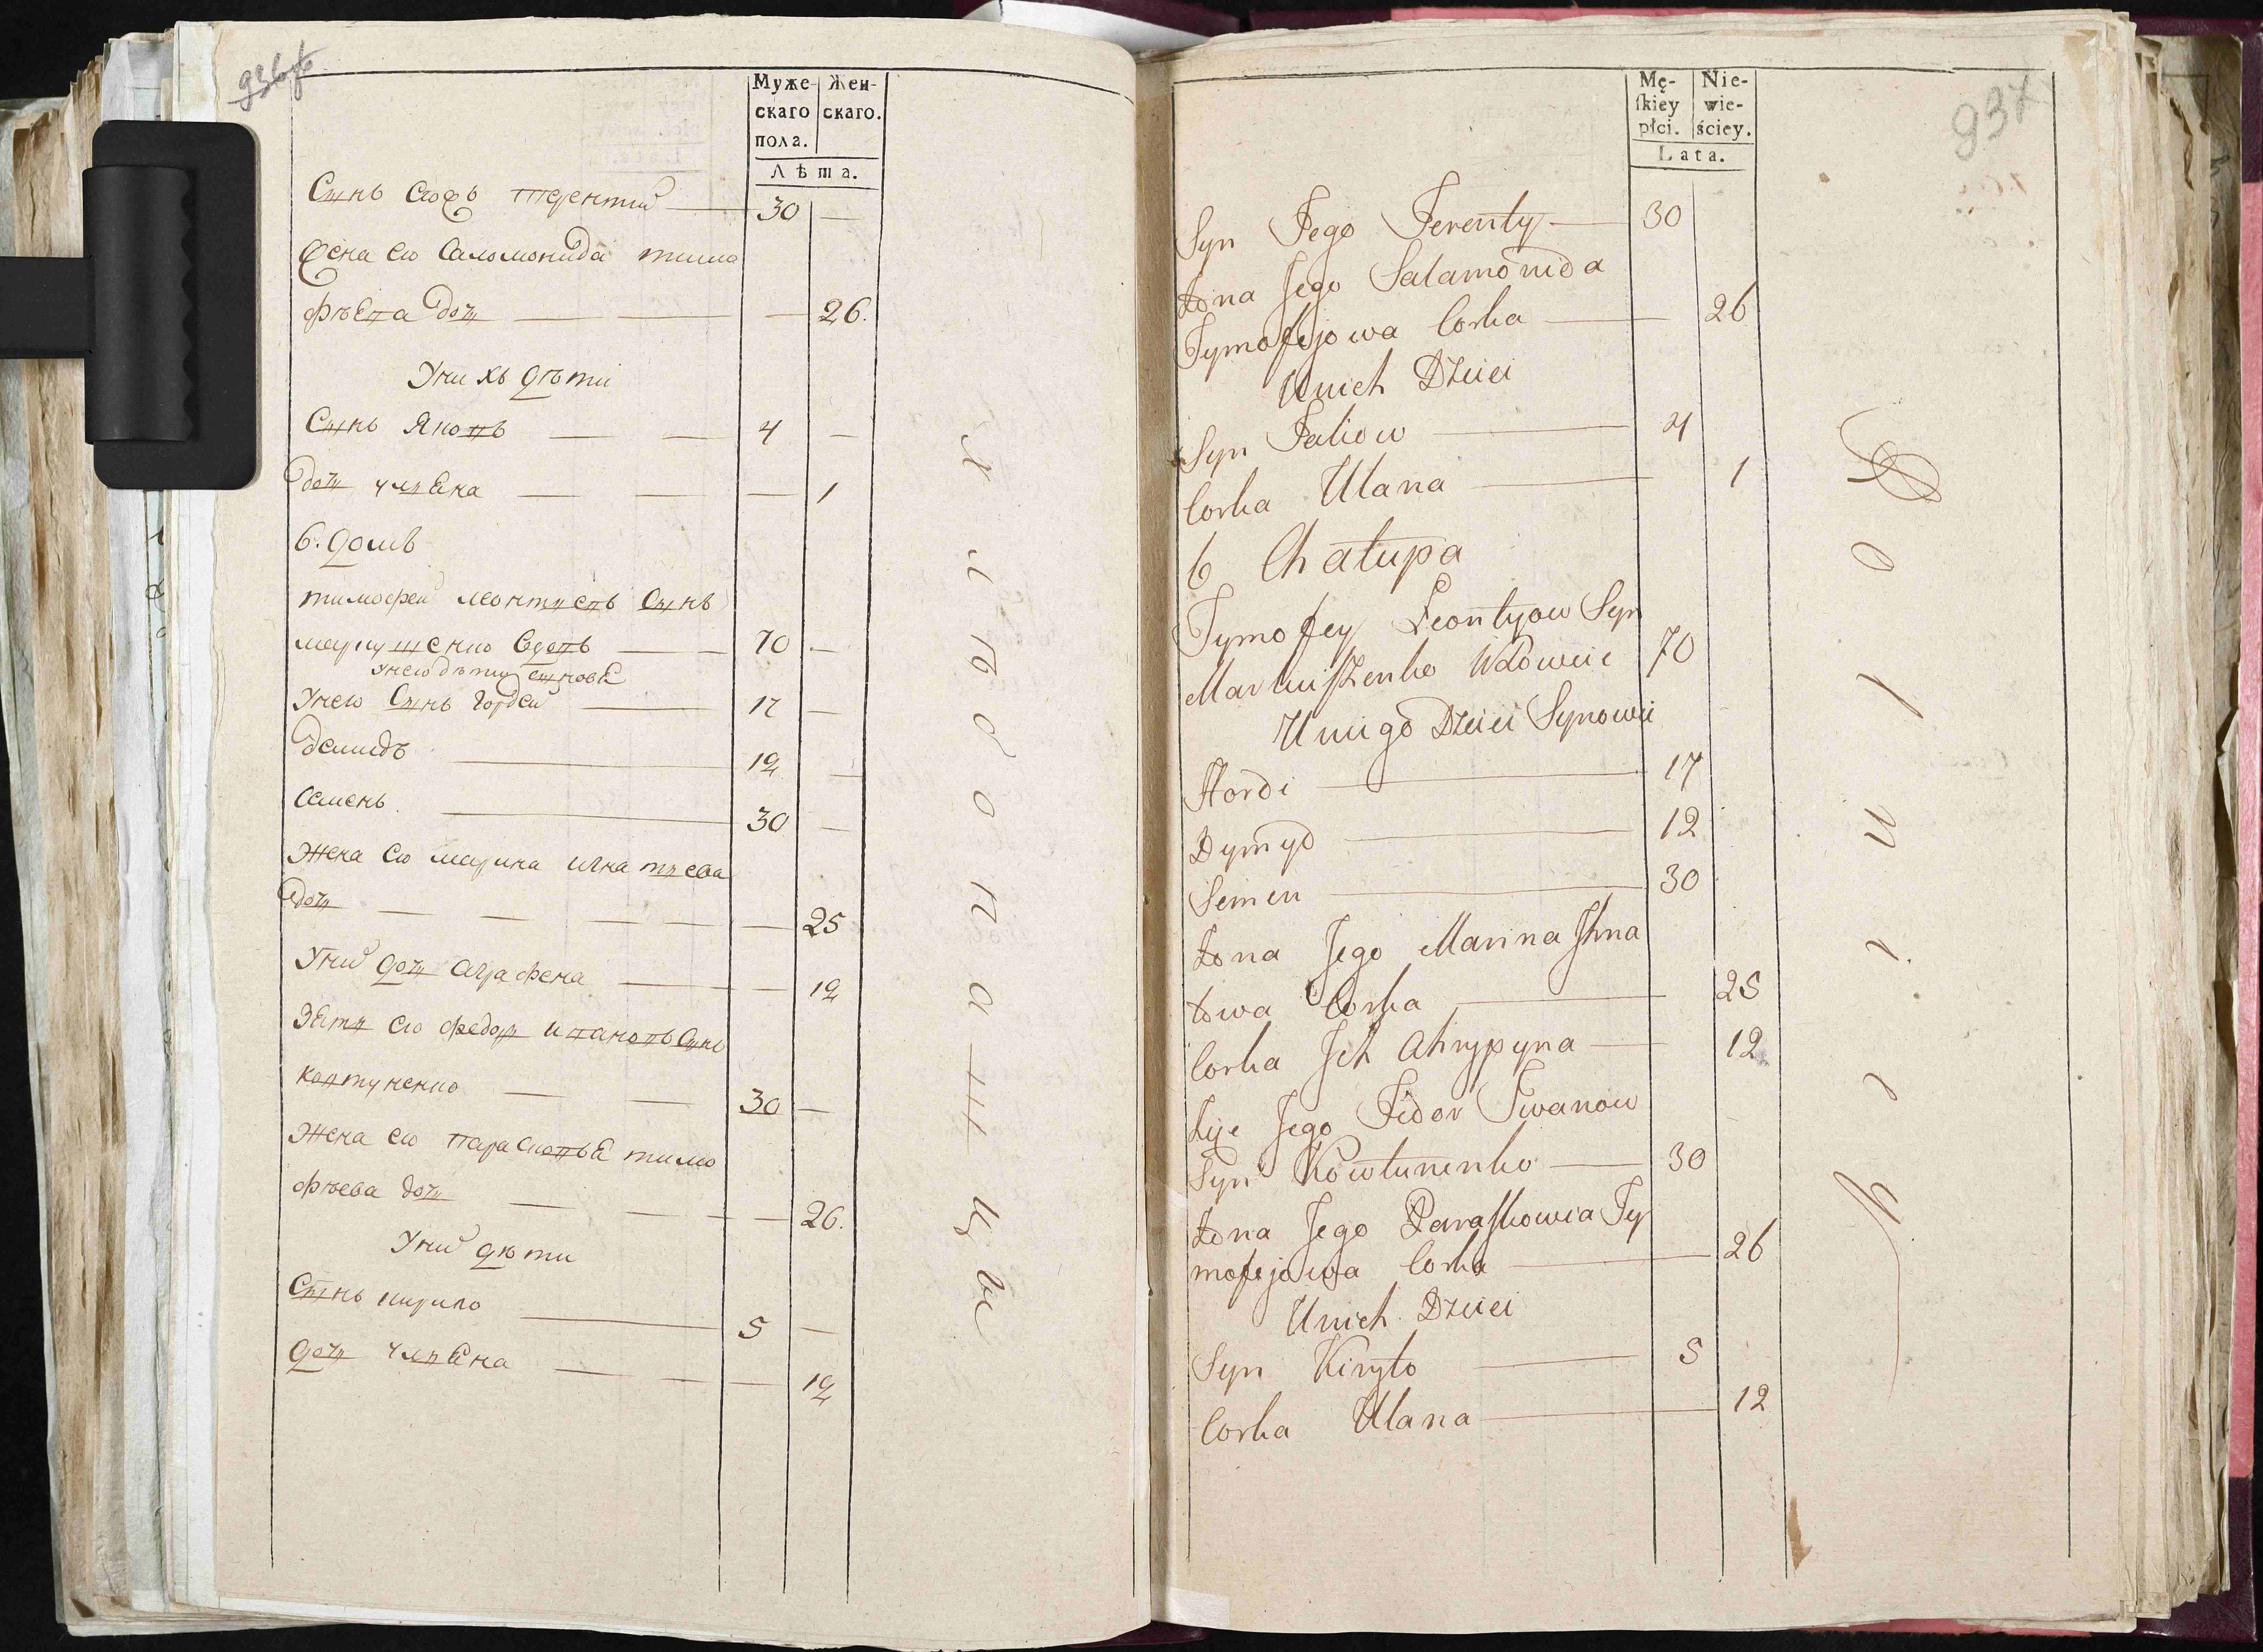 936
Муже-
скаго
пола.
Жен-
скаго.
Лѣта.
Сынъ Терентий 30 —
Жена ею Саломонида тимо
фѣева дочь — — — 26.
У них дѣти
Сынъ Яковъ — — 4 —
дочь уляна — — — 1
6. домъ
тимофей леонтьевъ Сынъ
маркушенко вдовъ — 70 —
У нею дѣти сыновя
У нею Сынъ гордей — 17 —
демидъ — 12 —
Семенъ — 30 —
Жена ею марина игнатьева
дочь — — — — — 25
У них дочь аграфена — — 12
Зять ею федоръ ивановъ Сынъ
ковтуненко — — 30 —
Жена ею парасковья тимо
фѣева дочь — — — — 26.
У них дѣти
Сынъ кирило — 5 —
дочь уляна — — — 12
Х л ѣ б о п а ш ц ы
937
Mę-
ſkiey
płci.
Nie-
wie-
ściey.
Lata.
Syn Jego Terenty — 30
Żona Jego Salamonida
Tymofejowa Corka — 26
U nich Dzieci
Syn Jakow — 4
Corka Ulana — 1
6 Chałupa
Tymofey Leontyow Syn
Markuszenko Wdowiec 70
U niego Dzieci Synowie
Hordi — 17
Dymyd — 12
Semen — 30
Żona Jego Marina Ihna
towa Corka — 25
Corka Ich Ahrypyna — 12
Zięc Jego Fidor Iwanow
Syn Kowtunenko — 30
Żona Jego Paraskowia Ty
mofejowa Corka — 26
U nich Dzieci
Syn Kiryło — 5
Corka Ulana — 12
R o l n i c y